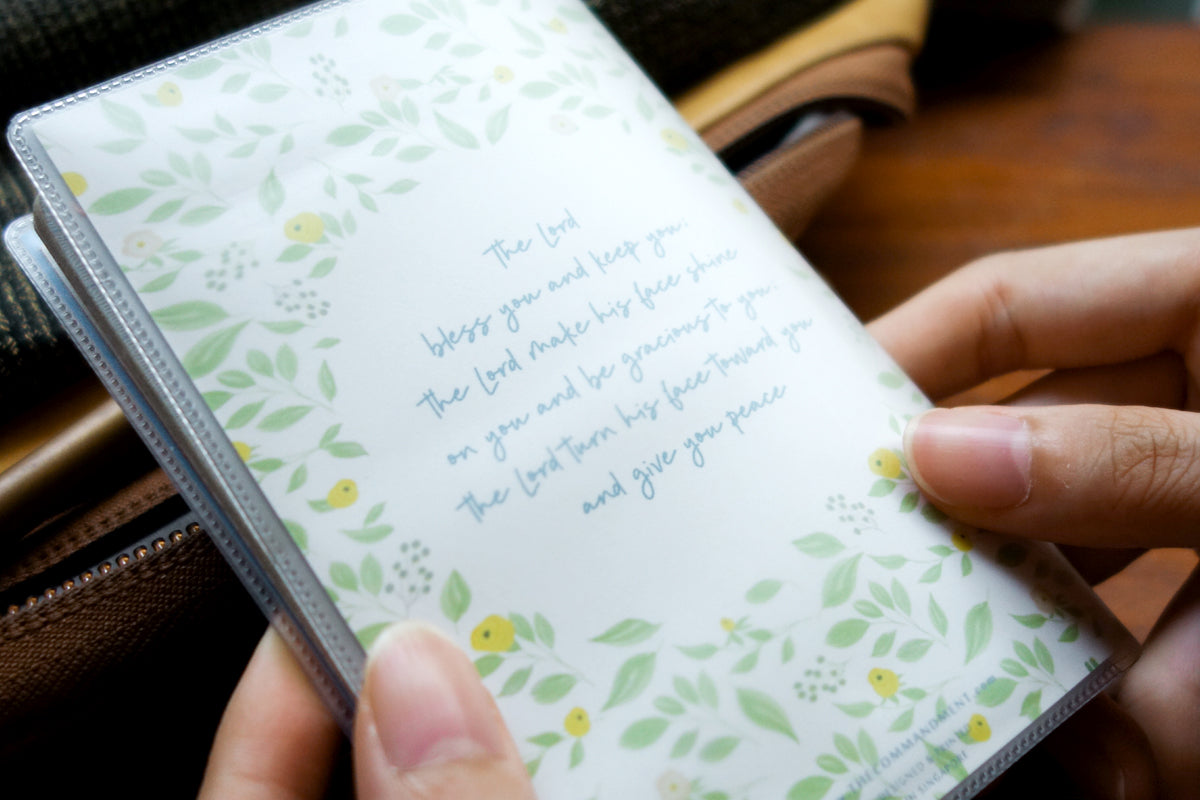 The Lord
bless you and keep you:
the Lord make his face shine
on you and be gracious to you:
the Lord turn his face toward you
and give you peace
THECOMMANDMENT.com
DESIGNED
IN SINGAPORE